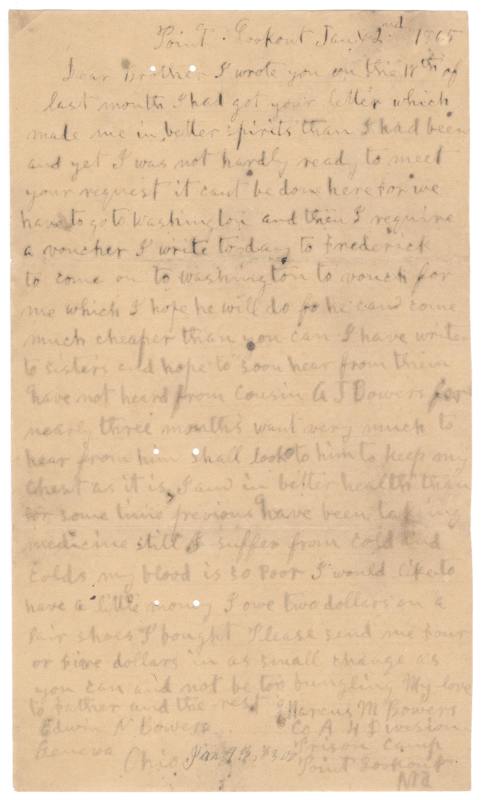 Point Lookout Jany 2nd 1865
Dear Brother I wrote you on the 11th of
last month I had got your letter which
made me in better spirits than I had been
and yet I was not hardly ready to meet
your request it cant be done here for we
have to go to Washington and then I require
a voucher I write to day to Frederick
to come on to Washington to vouch for
me which I hope he will do so he can come
much cheaper than you can I have write
to sisters and hope to soon hear from them
have not heard from Cousin A J Bowers for
nearly three months want very much to
hear from him shall look to him to keep my
chest as it is, I am in better health than
for some time previous have been taking
medicine still I suffer from cold and
colds my blood is so poor I would like to
have a little money I owe two dollars on a
pair shoes I bought Please send me four
or five dollars in as small change as
you can and not be too bungling My love
to Father and the rest Marcus M Bowers
Edwin N Bowers Co A 4 Division
Geneva Prison Camp
Ohio Point Lookout
Md